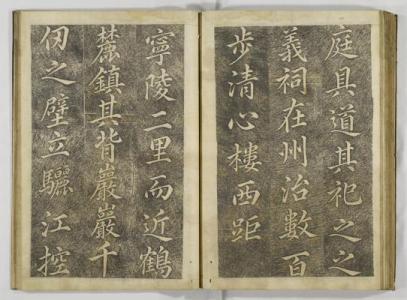 庭具道其祀之之
義祠在州治數百
步清心樓西距
寧陵二里而近鶴
麓鎮其背巖巖千
仞之壁立驪江控